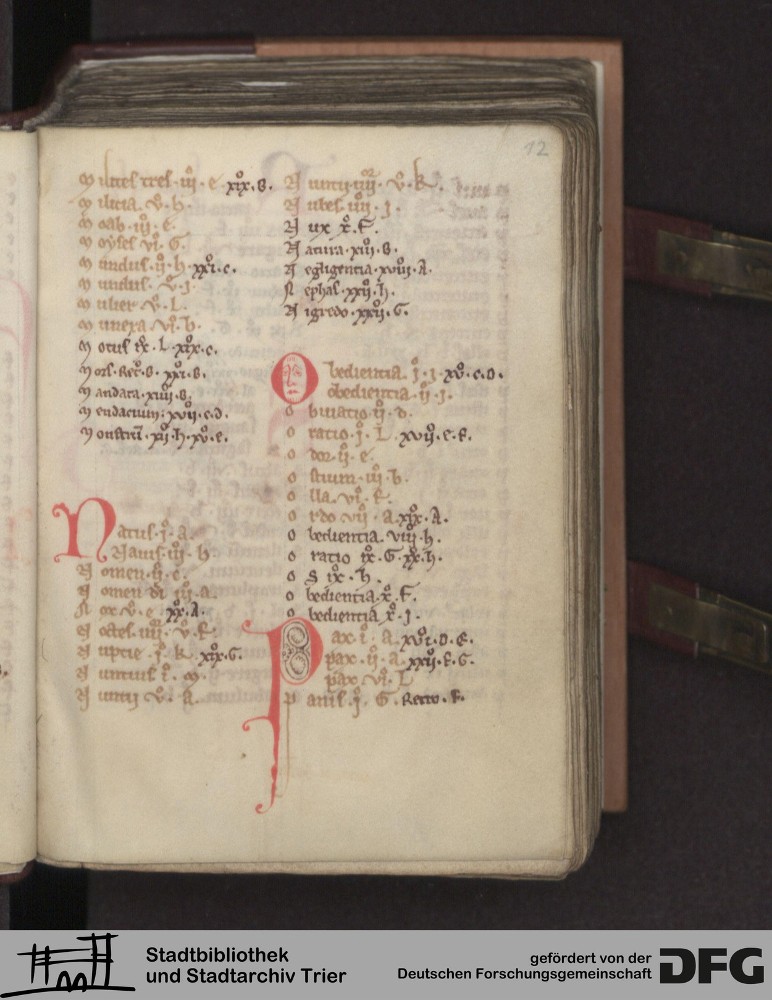 12
Milites tres · iii · e · xix · B ·
Milicia · v · h ·
Moab · iii · e ·
Moyses vi · G ·
Mundus · ii · h · xxi · c ·
Mundus · v · i ·
Mulier v · L ·
Munera · vi · b ·
Motus ix · L · xix · c ·
Mors · Rec · B · xxi · B ·
Mandata · xiiii · B ·
Mendacium · xvii · c · D ·
Monstrū · xii · h · xv · e ·
Natus · i · a ·
Nauis · iii · h
Nomen · ii · c ·
Nomen di · iii · a ·
Nox · v · e · xx · A ·
Noctes · iiii · v · k ·
Nuptie · i · K · xix · G ·
Nuntius · i · m ·
Nuntii · v · A ·
Nuntii · iiii · v · k ·
Nubes · iiii · i ·
Nux x · f ·
Natura · xiii · B ·
Negligentia · xviii · A ·
Nephas · xxii · h ·
Nigredo · xxii · G ·
Obedientia · i · i · xv · c · D ·
obedientia · ii · i ·
Obuiatio · ii · d ·
Oratio · i · L · xvii · e · f ·
Odor · ii · e ·
Ostium · iii · b ·
Olla · vi · k ·
Ordo · vii · A · xix · A ·
Obedientia · viii · h ·
Oratio ix · G · xx · h ·
Os ix · h ·
Obedientia · x · f ·
Obedientia · x · i ·
Pax · i · A · xvi · D · E ·
pax · ii · a · xxii · f · G ·
pax vi · L
Panis · i · G · Recto · f ·
Stadtbibliothek
und Stadtarchiv Trier
gefördert von der
Deutschen Forschungsgemeinschaft
DFG